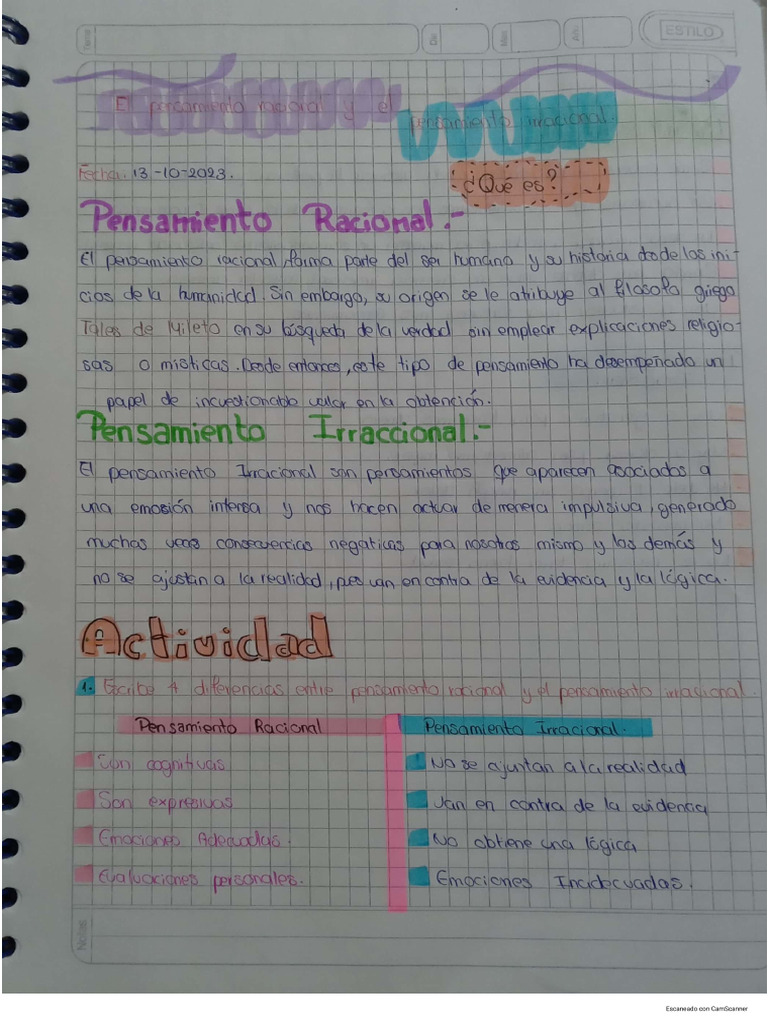 Tema
Día
Mes
Año
ESTILO
El pensamiento racional y el
pensamiento irracional.
Fecha. 13-10-2023.
¿Qué es?
Pensamiento Racional.-
El pensamiento racional, forma parte del ser humano y su historia desde los ini-
cios de la humanidad. Sin embargo, su origen se le atribuye al filosofo griego
Tales de Mileto en su búsqueda de la verdad sin emplear explicaciones religio-
sas o misticas. Desde entonces, este tipo de pensamiento ha desempeñado un
papel de incuestionable valor en la obtención.
Pensamiento Irraccional.-
El pensamiento Irracional son pensamientos que aparecen asociados a
una emosión intensa y nos hacen actuar de manera impulsiva, generado
muchas veces consecuencias negativas para nosotros mismo y los demás y
no se ajustan a la realidad, pues van en contra de la evidencia y la lógica.
Actividad
1. Escribe 4 diferencias entre pensamiento racional y el pensamiento irracional.
Pensamiento Racional
Pensamiento Irracional.
Son cognitivas
No se ajustan a la realidad
Son expresivas
Van en contra de la evidencia
Emociones Adecuadas.
No obtiene una lógica
Evaluaciones personales.
Emociones Inadecuadas.
Notas
Escaneado con CamScanner